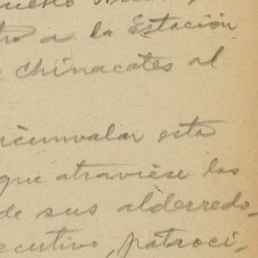 a la Estación
Chinacates al
circunvalar esta
que atraviese los
de sus alderredo-
ecutivo, patroci-